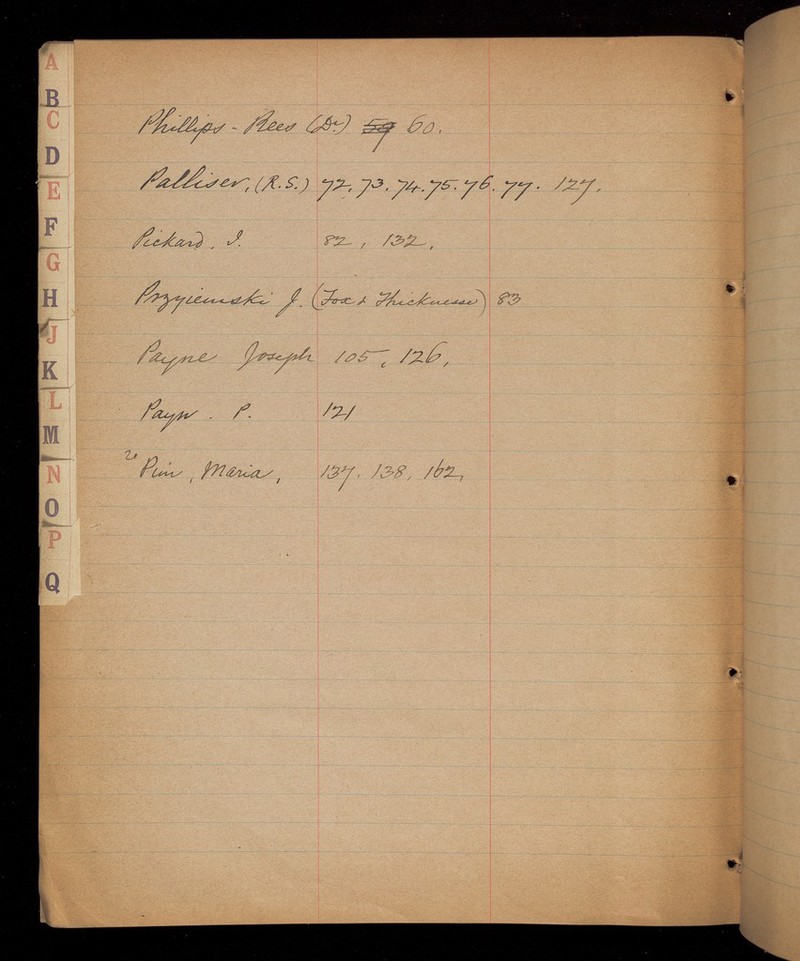 A
B
C
D
E
F
G
H
J
K
L
M
N
O
P
Q
Phillips - Rees (Dr) 59 60.
Palliser, (R.S.) 72, 73. 74. 75. 76. 77. 127.
Pickard, I. 82, 132.
Przyiemski J. (Fox & Thicknesse) 83
Payne Joseph 105, 126,
Payn. P. 121
Pim, Maria, 137. 138, 162,